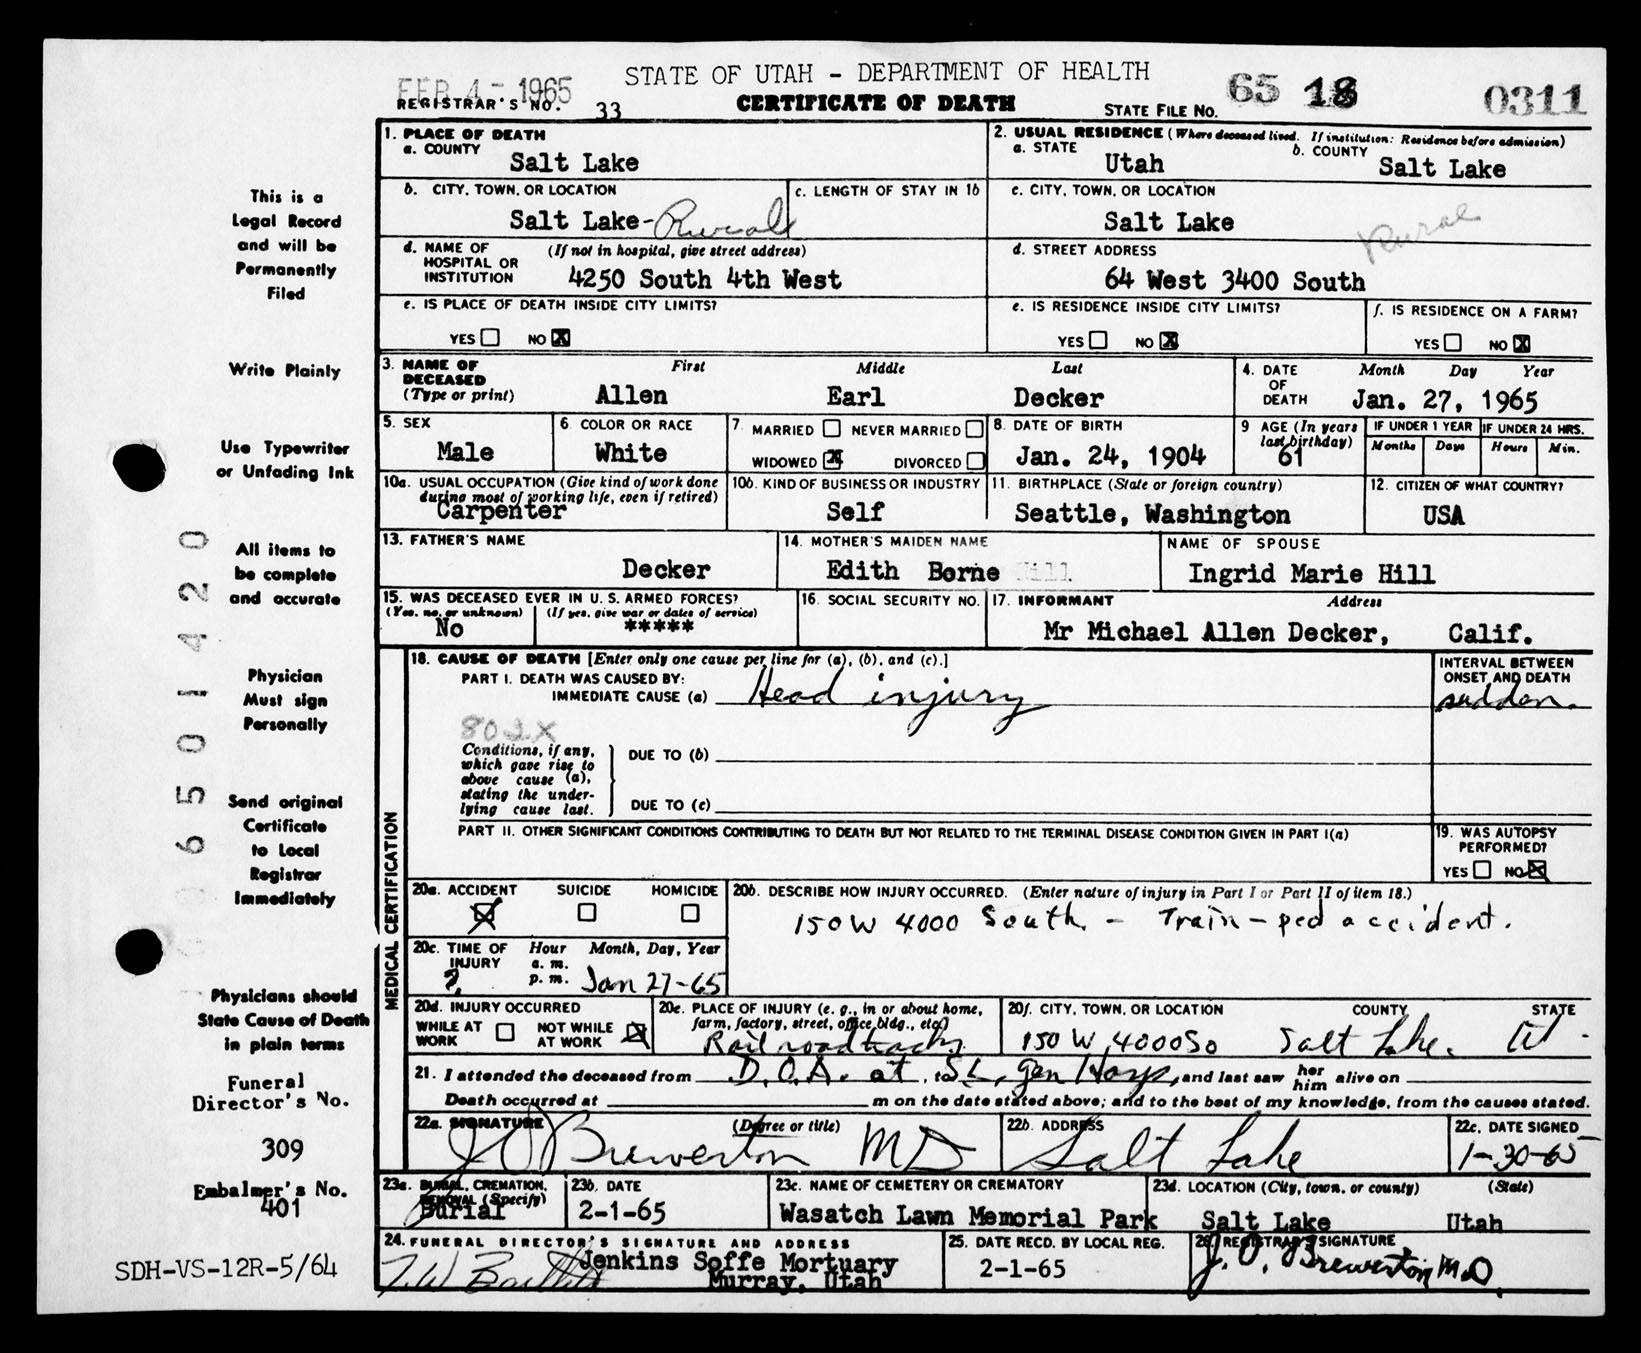 STATE OF UTAH - DEPARTMENT OF HEALTH
FEB 4 - 1965
REGISTRAR'S NO. 33
CERTIFICATE OF DEATH
STATE FILE NO. 65 18 0311
1. PLACE OF DEATH
a. COUNTY
Salt Lake
2. USUAL RESIDENCE (Where deceased lived. If institution: Residence before admission)
a. STATE
Utah
b. COUNTY
Salt Lake
b. CITY, TOWN, OR LOCATION
Salt Lake-Rural
c. LENGTH OF STAY IN 1b
c. CITY, TOWN, OR LOCATION
Salt Lake
Rural
d. NAME OF HOSPITAL OR INSTITUTION (If not in hospital, give street address)
4250 South 4th West
d. STREET ADDRESS
64 West 3400 South
e. IS PLACE OF DEATH INSIDE CITY LIMITS?
YES NO X
e. IS RESIDENCE INSIDE CITY LIMITS?
YES NO X
f. IS RESIDENCE ON A FARM?
YES NO X
3. NAME OF DECEASED (Type or print)
First Middle Last
Allen Earl Decker
4. DATE OF DEATH
Month Day Year
Jan. 27, 1965
5. SEX
Male
6. COLOR OR RACE
White
7. MARRIED NEVER MARRIED
WIDOWED X DIVORCED
8. DATE OF BIRTH
Jan. 24, 1904
9 AGE (In years last birthday)
61
IF UNDER 1 YEAR
Months Days
IF UNDER 24 HRS.
Hours Min.
10a. USUAL OCCUPATION (Give kind of work done during most of working life, even if retired)
Carpenter
10b. KIND OF BUSINESS OR INDUSTRY
Self
11. BIRTHPLACE (State or foreign country)
Seattle, Washington
12. CITIZEN OF WHAT COUNTRY?
USA
13. FATHER'S NAME
Decker
14. MOTHER'S MAIDEN NAME
Edith Borne Hill
NAME OF SPOUSE
Ingrid Marie Hill
15. WAS DECEASED EVER IN U. S. ARMED FORCES?
(Yes, no, or unknown) (If yes, give war or dates of service)
No *****
16. SOCIAL SECURITY NO.
17. INFORMANT Address
Mr Michael Allen Decker, Calif.
MEDICAL CERTIFICATION
18. CAUSE OF DEATH [Enter only one cause per line for (a), (b), and (c).]
PART I. DEATH WAS CAUSED BY:
IMMEDIATE CAUSE (a) Head injury
INTERVAL BETWEEN ONSET AND DEATH
sudden.
802X
Conditions, if any, which gave rise to above cause (a), stating the underlying cause last.
DUE TO (b)
DUE TO (c)
PART II. OTHER SIGNIFICANT CONDITIONS CONTRIBUTING TO DEATH BUT NOT RELATED TO THE TERMINAL DISEASE CONDITION GIVEN IN PART I(a)
19. WAS AUTOPSY PERFORMED?
YES NO X
20a. ACCIDENT SUICIDE HOMICIDE
X
20b. DESCRIBE HOW INJURY OCCURRED. (Enter nature of injury in Part I or Part II of item 18.)
150W 4000 South - Train-ped accident.
20c. TIME OF INJURY
Hour Month, Day, Year
a. m.
p. m.
? Jan 27-65
20d. INJURY OCCURRED
WHILE AT WORK NOT WHILE AT WORK X
20e. PLACE OF INJURY (e. g., in or about home, farm, factory, street, office bldg., etc.)
Railroad tracks
20f. CITY, TOWN, OR LOCATION COUNTY STATE
150 W 4000 So Salt Lake. Ut.
21. I attended the deceased from D.O.A. at to S L, Gen Hosp, and last saw her him alive on
Death occurred at m on the date stated above; and to the best of my knowledge, from the causes stated.
22a. SIGNATURE (Degree or title)
J O Brewerton MD
22b. ADDRESS
Salt Lake
22c. DATE SIGNED
1-30-65
23a. BURIAL, CREMATION, REMOVAL (Specify)
Burial
23b. DATE
2-1-65
23c. NAME OF CEMETERY OR CREMATORY
Wasatch Lawn Memorial Park
23d. LOCATION (City, town, or county) (State)
Salt Lake Utah
24. FUNERAL DIRECTOR'S SIGNATURE AND ADDRESS
Jenkins Soffe Mortuary
Murray, Utah
25. DATE RECD. BY LOCAL REG.
2-1-65
26. REGISTRAR'S SIGNATURE
J. O. Brewerton M.D.
This is a
Legal Record
and will be
Permanently
Filed
Write Plainly
Use Typewriter
or Unfading Ink
All items to
be complete
and accurate
Physician
Must sign
Personally
Send original
Certificate
to Local
Registrar
Immediately
Physicians should
State Cause of Death
in plain terms
Funeral
Director's No.
309
Embalmer's No.
401
SDH-VS-12R-5/64
0650 1420